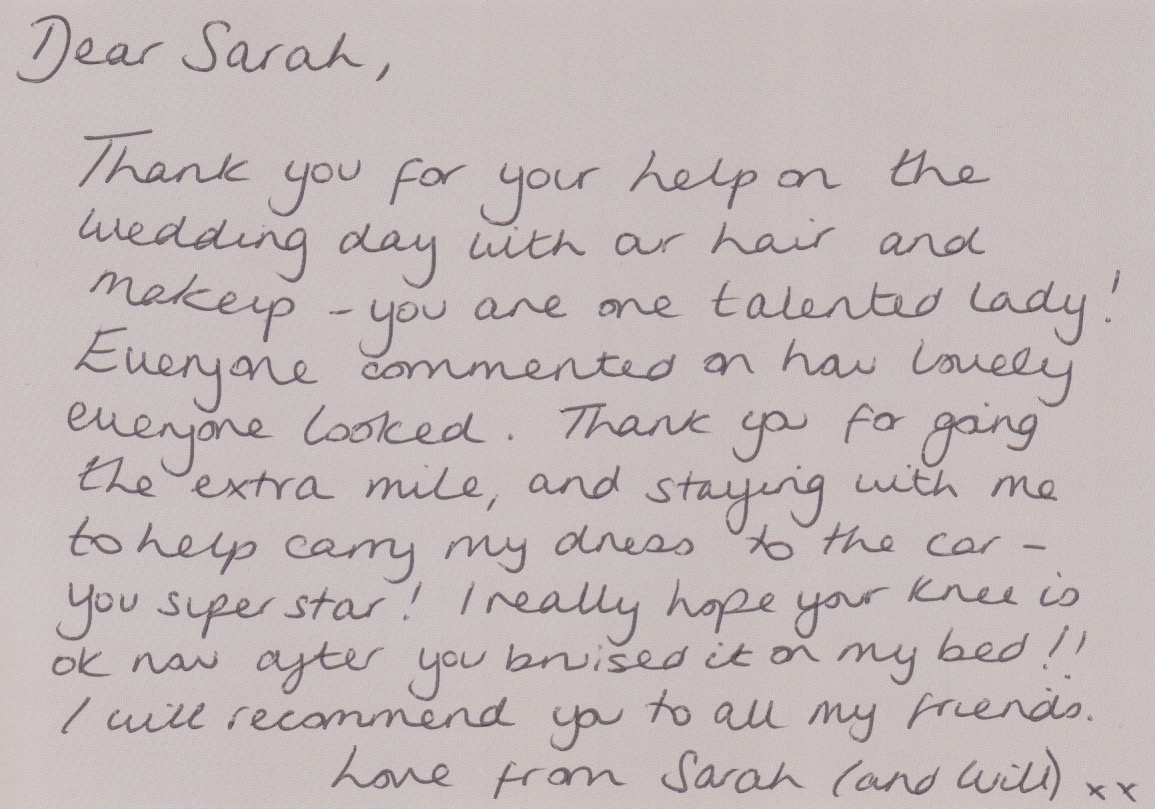 Dear Sarah,
Thank you for your help on the
wedding day with our hair and
makeup - you are one talented lady!
Everyone commented on how lovely
everyone looked. Thank you for going
the extra mile, and staying with me
to help carry my dress to the car -
you super star! I really hope your knee is
ok now after you bruised it on my bed!!
I will recommend you to all my friends.
Love from Sarah (and Will) xx